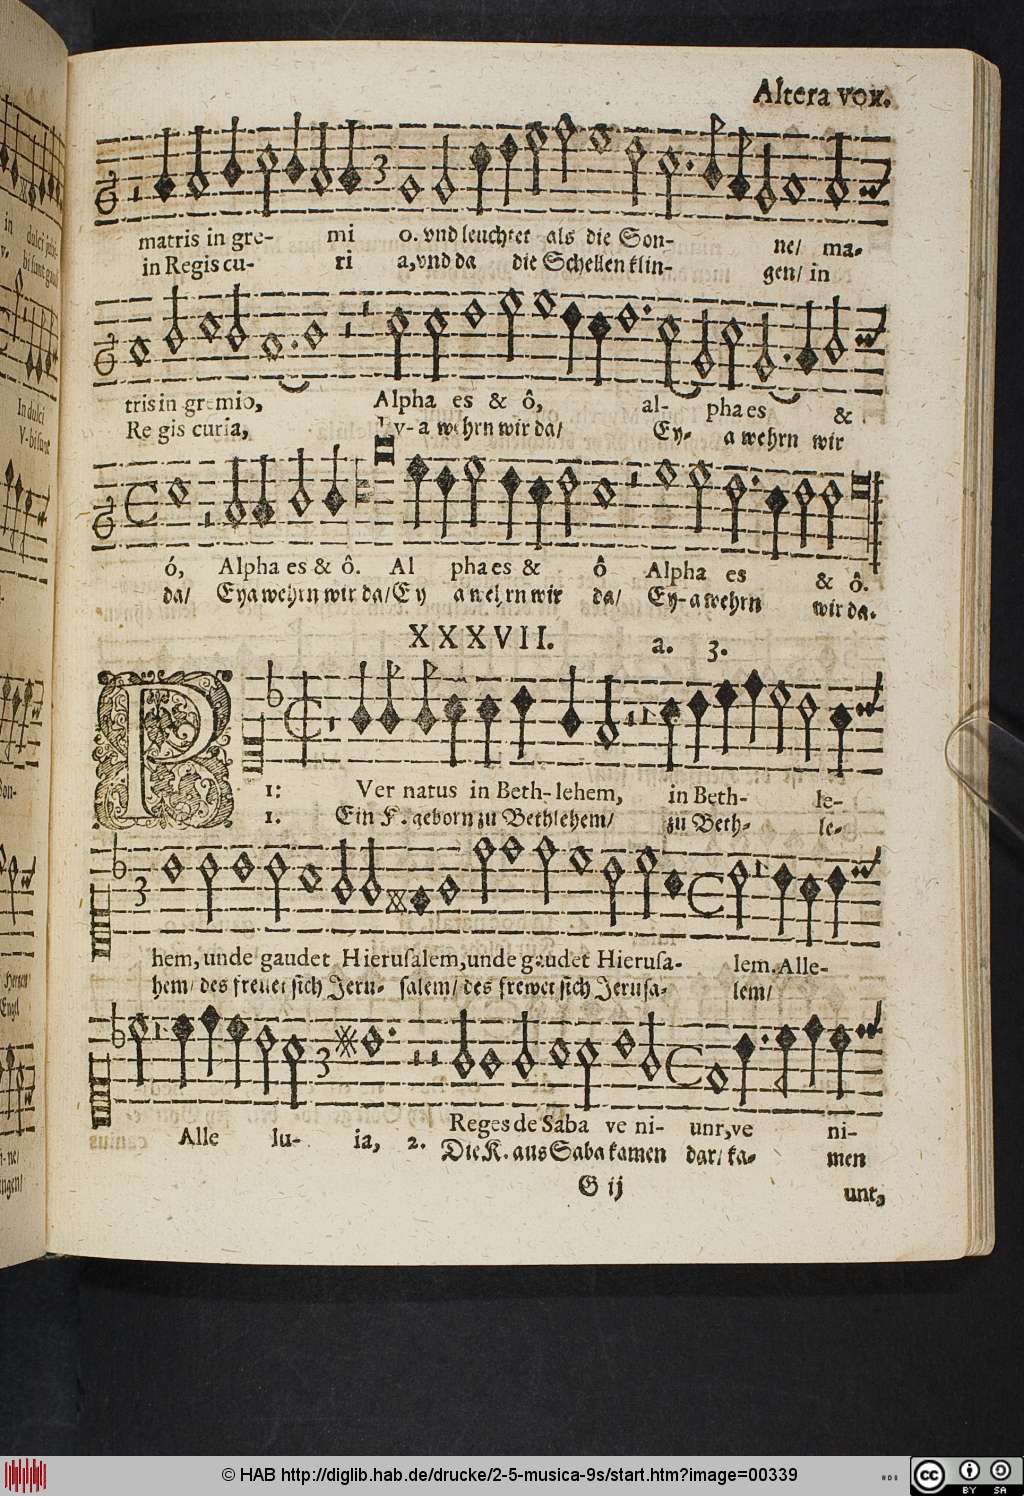 Altera vox.
matris in gre- mi o. vnd leuchtet als die Son- ne/ ma-
in Regis cu- ri a, vnd da die Schellen klin- gen/ in
tris in gremio, Alpha es & ô, al- pha es &
Re gis curia, Ey-a wehrn wir da/ Ey- a wehrn wir
ó, Alpha es & ô. Al pha es & ô Alpha es & ô.
da/ Eya wehrn wir da/ Ey a wehrn wir da/ Ey-a wehrn wir da.
XXXVII. a. 3.
P
1: Ver natus in Beth-lehem, in Beth- le-
1. Ein K. geborn zu Bethlehem/ zu Beth- le-
hem, unde gaudet Hierusalem, unde gaudet Hierusa- lem. Alle-
hem/ des frewet sich Jeru- salem/ des frewet sich Jerusa- lem/
Alle lu- ia, 2. Reges de Saba ve ni- unt, ve ni-
Die K. aus Saba kamen dar/ ka- men
G ij unt,
in dulci jubi-
In dulci
V-bi sunt
© HAB http://diglib.hab.de/drucke/2-5-musica-9s/start.htm?image=00339
cc BY SA